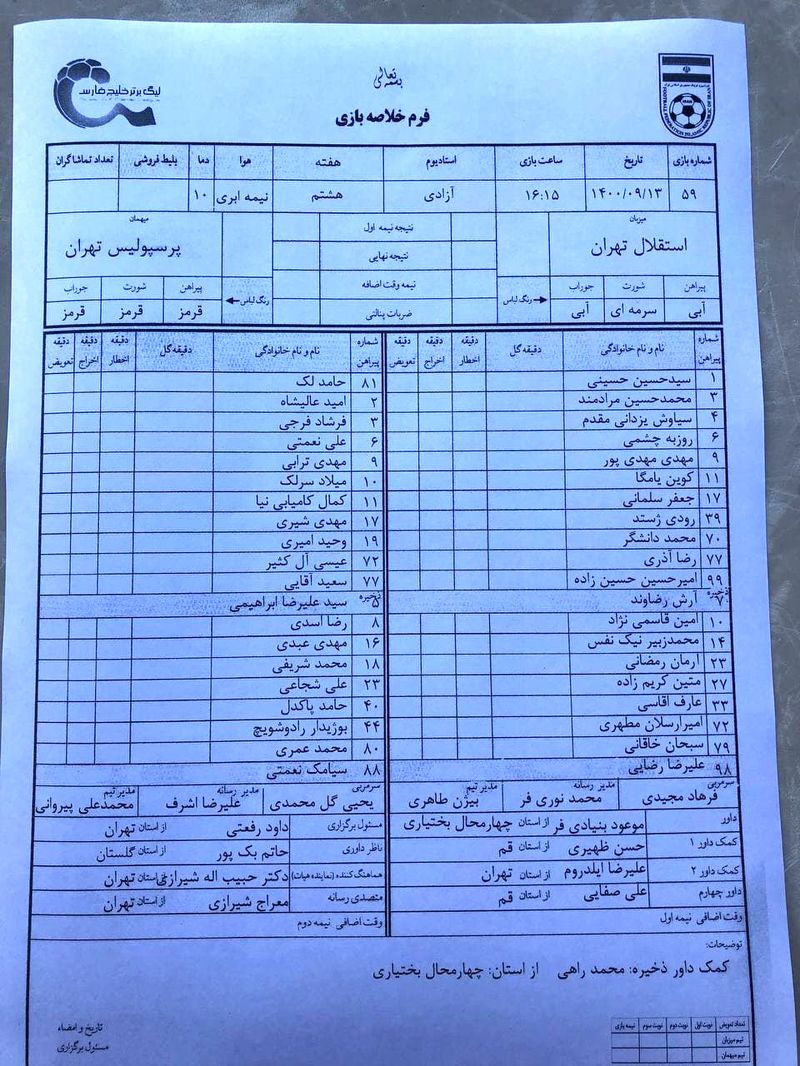 بسمه تعالی
لیگ برتر خلیج فارس
FOOTBALL FEDERATION ISLAMIC REPUBLIC OF IRAN
فرم خلاصه بازی
شماره بازی تاریخ ساعت بازی استادیوم هفته هوا دما بلیط فروشی تعداد تماشاگران
۵۹ ۱۴۰۰/۰۹/۱۳ ۱۶:۱۵ آزادی هشتم نیمه ابری ۱۰
میزبان نتیجه نیمه اول میهمان
استقلال تهران نتیجه نهایی پرسپولیس تهران
پیراهن شورت جوراب رنگ لباس نیمه وقت اضافه رنگ لباس پیراهن شورت جوراب
آبی سرمه ای آبی ضربات پنالتی قرمز قرمز قرمز
شماره پیراهن نام و نام خانوادگی دقیقه گل دقیقه اخطار دقیقه اخراج دقیقه تعویض شماره پیراهن نام و نام خانوادگی دقیقه گل دقیقه اخطار دقیقه اخراج دقیقه تعویض
۱ سیدحسین حسینی ۸۱ حامد لک
۳ محمدحسین مرادمند ۲ امید عالیشاه
۴ سیاوش یزدانی مقدم ۳ فرشاد فرجی
۶ روزبه چشمی ۶ علی نعمتی
۹ مهدی مهدی پور ۹ مهدی ترابی
۱۱ کوین یامگا ۱۰ میلاد سرلک
۱۷ جعفر سلمانی ۱۱ کمال کامیابی نیا
۳۹ رودی ژستد ۱۷ مهدی شیری
۷۰ محمد دانشگر ۱۹ وحید امیری
۷۷ رضا آذری ۷۲ عیسی آل کثیر
۹۹ امیرحسین حسین زاده ۷۷ سعید آقایی
ذخیره ۷ آرش رضاوند ذخیره ۵ سید علیرضا ابراهیمی
۱۰ امین قاسمی نژاد ۸ رضا اسدی
۱۴ محمدزبیر نیک نفس ۱۶ مهدی عبدی
۲۳ آرمان رمضانی ۱۸ محمد شریفی
۲۷ متین کریم زاده ۲۳ علی شجاعی
۳۳ عارف آقاسی ۴۰ حامد پاکدل
۷۲ امیرارسلان مطهری ۴۴ بوژیدار رادوشویچ
۷۹ سبحان خاقانی ۸۰ محمد عمری
۹۸ علیرضا رضایی ۸۸ سیامک نعمتی
سرمربی فرهاد مجیدی مدیر رسانه محمد نوری فر مدیر تیم بیژن طاهری سرمربی یحیی گل محمدی مدیر رسانه علیرضا اشرف مدیر تیم محمدعلی پیروانی
داور موعود بنیادی فر از استان چهارمحال بختیاری مسئول برگزاری داود رفعتی از استان تهران
کمک داور ۱ حسن ظهیری از استان قم ناظر داوری حاتم بک پور از استان گلستان
کمک داور ۲ علیرضا ایلدروم از استان تهران هماهنگ کننده (نماینده هیات) دکتر حبیب اله شیرازی از استان تهران
داور چهارم علی صفایی از استان قم متصدی رسانه معراج شیرازی از استان تهران
وقت اضافی نیمه اول وقت اضافی نیمه دوم
توضیحات:
کمک داور ذخیره: محمد راهی از استان: چهارمحال بختیاری
تاریخ و امضاء
مسئول برگزاری
تعداد تعویض نوبت اول نوبت دوم نوبت سوم نیمه بازی
تیم میزبان
تیم میهمان